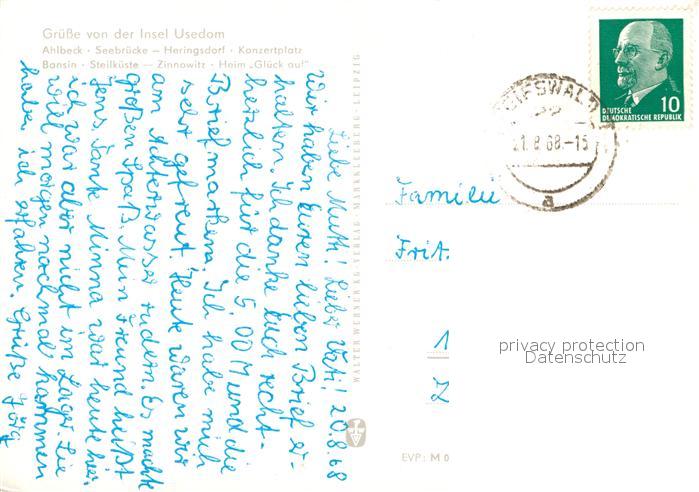 Grüße von der Insel Usedom
Ahlbeck · Seebrücke – Heringsdorf · Konzertplatz
Bansin · Steilküste – Zinnowitz · Heim „Glück auf"
Liebe Mutti! Lieber Vati! 20.8.68
Wir haben Euren lieben Brief er-
halten. Ich danke Euch recht-
herzlich für die 5,00 M und die
Briefmarken. Ich habe mich
sehr gefreut. Heute waren wir
am Achterwasser rudern. Es machte
großen Spaß. Mein Freund heißt
Jens. Tante Minna war heute hier.
ich war aber nicht im Lager. Sie
will morgen nochmal kommen
habe ich erfahren. Grüße Jörg
WALTER WERNER KG · VERLAG · MARKKLEEBERG · LEIPZIG
EVP: M 0
GREIFSWALD
21.8.68.-15
a
DEUTSCHE
DEMOKRATISCHE REPUBLIK
10
Familie
Frit.
1
Z
privacy protection
Datenschutz